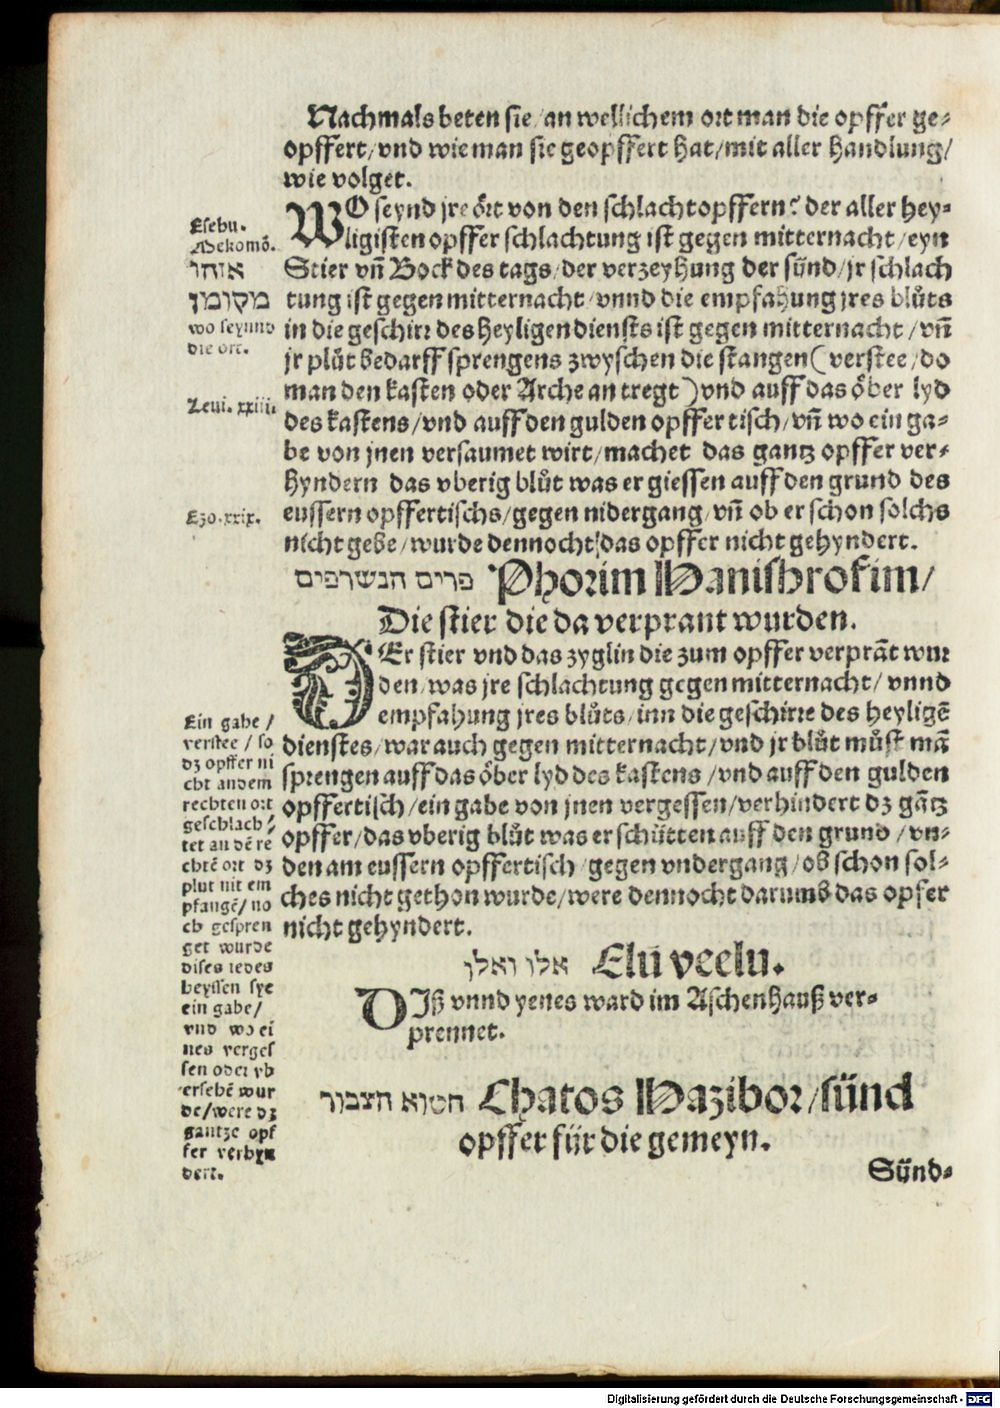 Nachmals beten sie/an wellichem ort man die opffer ge-
opffert/vnd wie man sie geopffert hat/mit aller handlung/
wie volget.
WO seynd jre ört von den schlachtopffern? der aller hey-
ligisten opffer schlachtung ist gegen mitternacht/eyn
Stier vñ Bock des tags/der verzeyhung der sünd/jr schlach
tung ist gegen mitternacht/vnnd die empfahung jres blůts
in die geschirr des heyligen diensts ist gegen mitternacht/vñ
jr plůt bedarff sprengens zwyschen die stangen (verstee/do
man den kasten oder Arche an tregt) vnd auff das öber lyd
des kastens/vnd auff den gulden opffer tisch/vñ wo ein ga-
be von jnen versaumet wirt/machet das gantz opffer ver-
hyndern das vberig blůt was er giessen auff den grund des
eussern opffertischs/gegen nidergang/vñ ob er schon solchs
nicht gebe/wurde dennocht das opffer nicht gehyndert.
Esebu.
Mekomō.
איזהו
מקומן
wo seynnd
die ort.
Leui. xxiiii.
Exo. xxix.
פרים הנשרפים Phorim Hanishrofim/
Die stier die da verprant wurden.
DEr stier vnd das zyglin die zum opffer verprāt wur
den/was jre schlachtung gegen mitternacht/vnnd
empfahung jres blůts/inn die geschirre des heyligē
dienstes/war auch gegen mitternacht/vnd jr blůt můst mā
sprengen auff das öber lyd des kastens/vnd auff den gulden
opffertisch/ein gabe von jnen vergessen/verhindert dz gātz
opffer/das vberig blůt was er schütten auff den grund/vn-
den am eussern opffertisch/gegen vndergang/ob schon sol-
ches nicht gethon wurde/were dennocht darumb das opfer
nicht gehyndert.
Ein gabe/
verstee/so
dz opffer ni
cht an dem
rechten ort
geschlach/
tet an dē re
chtē ort dz
plut nit em
pfangē/no
ch gespren
get wurde
dises iedes
heyssen sye
ein gabe/
vnd wo ei
nes verges
sen oder vb
ersehē wur
de/were dz
gantze opf
fer verhyn
dert.
אלו ואלו Elu veelu.
DJß vnnd yenes ward im Aschenhauß ver-
prennet.
חטאת הצבור Chatos Hazibor/sünd
opffer für die gemeyn.
Sünd-
Digitalisierung gefördert durch die Deutsche Forschungsgemeinschaft - DFG